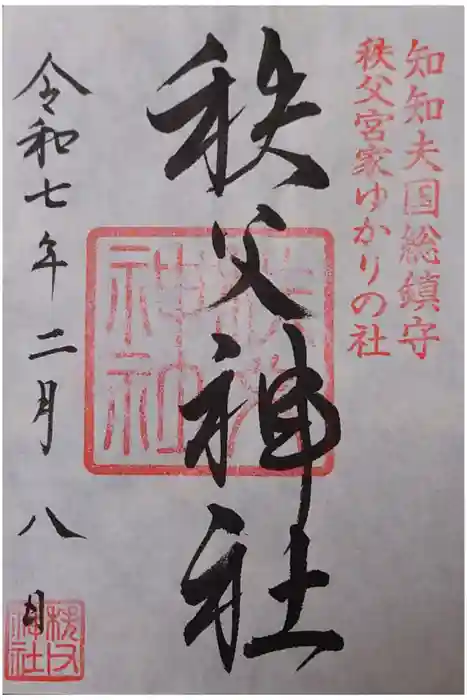 知知夫国総鎮守
秩父宮家ゆかりの社
秩父神社
秩父神社
令和七年二月八日
秩父神社